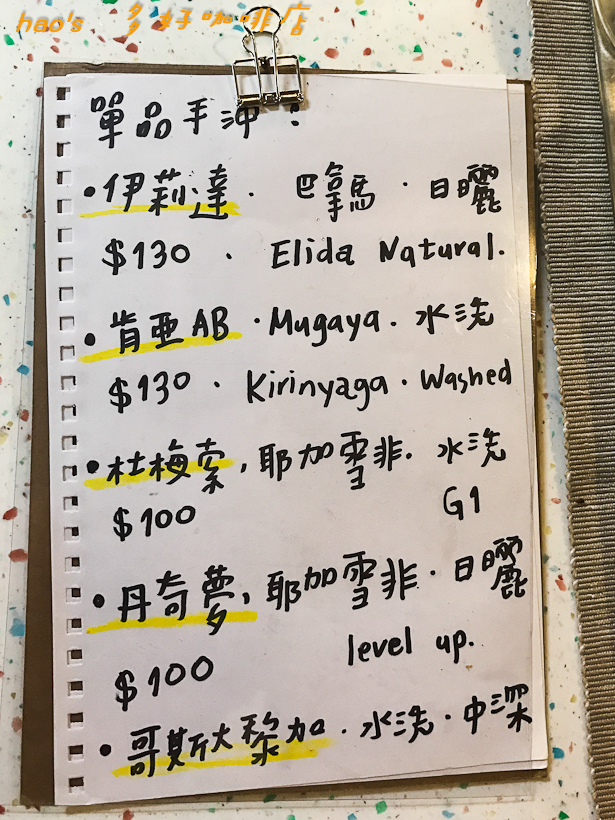 hao's 多好咖啡店
單品手沖：
•伊莉達．巴拿馬．日曬
$130．Elida Natural.
•肯亞AB．Mugaya．水洗
$130．Kirinyaga．Washed
•杜梅索，耶加雪非．水洗
$100 G1
•丹奇夢，耶加雪非．日曬
$100 level up.
•哥斯大黎加．水洗．中深